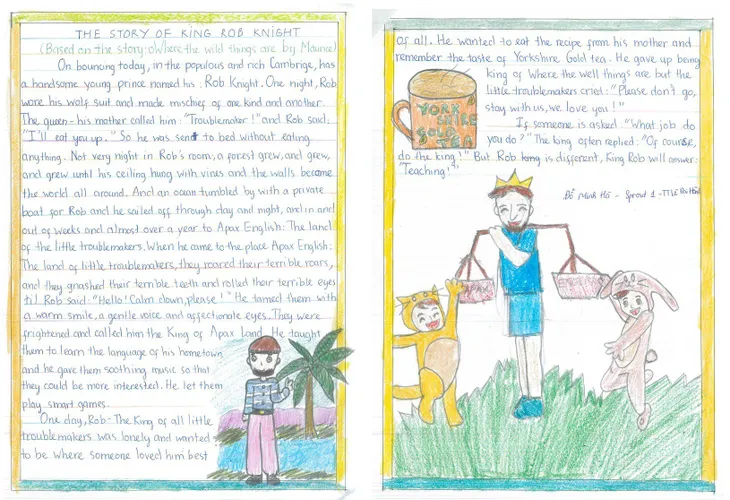 THE STORY OF KING ROB KNIGHT
(Based on the story: Where the wild things are by Maurice)
On bouncing today, in the populous and rich Cambrige, has
a handsome young prince named his: Rob Knight. One night, Rob
wore his wolf suit and made mischief of one kind and another.
The queen - his mother called him: "Troublemaker!" and Rob said:
"I'll eat you up." So he was sent to bed without eating
anything. Not very night in Rob's room, a forest grew, and grew,
and grew until his ceiling hung with vines and the walls become
the world all around. And an ocean tumbled by with a private
boat for Rob and he sailed off through day and night, and in and
out of weeks and almost over a year to Apax English: The land
of the little troublemakers. When he came to the place Apax English:
The land of little troublemakers, they roared their terrible roars,
and they gnashed their terrible teeth and rolled their terrible eyes
til Rob said: "Hello! Calm down, please!" He tamed them with
a warm smile, a gentle voice and affectionate eyes. They were
frightened and called him the King of Apax Land. He taught
them to learn the language of his hometown,
and he gave them soothing music so that
they could be more interested. He let them
play smart games.
One day, Rob - The King of all little
troublemakers was lonely and wanted
to be where someone loved him best
of all. He wanted to eat the recipe from his mother and
remember the taste of Yorkshire Gold tea. He gave up being
king of Where the well things are but the
little troublemakers cried: "Please don't go,
stay with us, we love you!"
YORK
SHIRE
GOLD
TEA
If someone is asked "What job do
you do?" The king often replied: "Of course,
do the king!" But Rob king is different, King Rob will answer:
"Teaching!"
Đỗ Minh Hà - Sprout 1 -